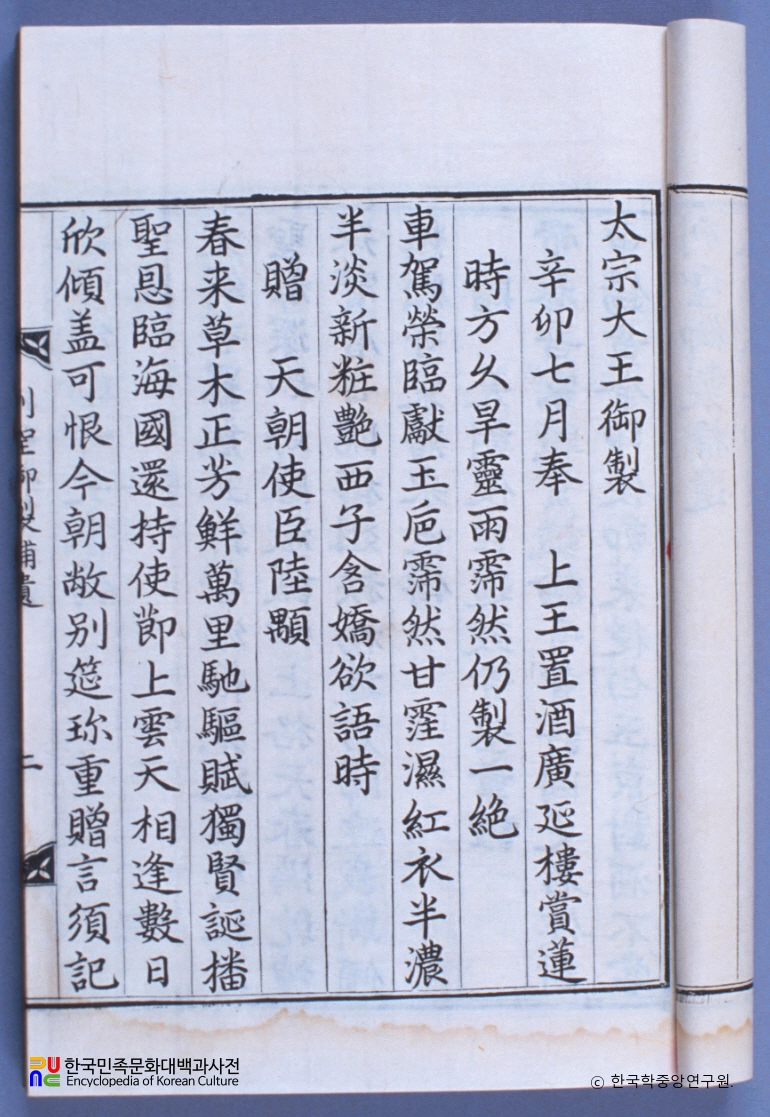 太宗大王御製
辛卯七月奉 上王置酒廣延樓賞蓮
時方久旱靈雨霈然仍製一絶
車駕榮臨獻玉巵霈然甘霔濕紅衣半濃
半淡新粧艶西子含嬌欲語時
贈 天朝使臣陸顒
春来草木正芳鮮萬里馳驅賦獨賢誕播
聖恩臨海國還持使節上雲天相逢數日
欣傾盖可恨今朝敞别筵珎重贈言須記
列聖御製補遺
二
한국민족문화대백과사전
Encyclopedia of Korean Culture
© 한국학중앙연구원.